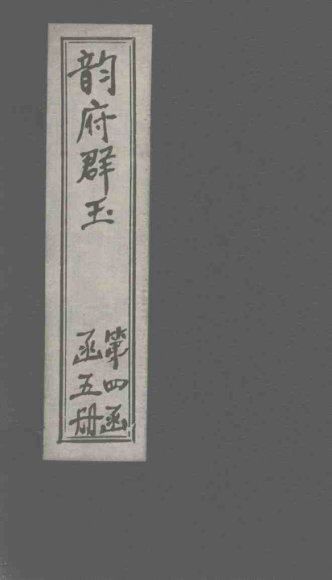 韵府群玉
第四函
函五册